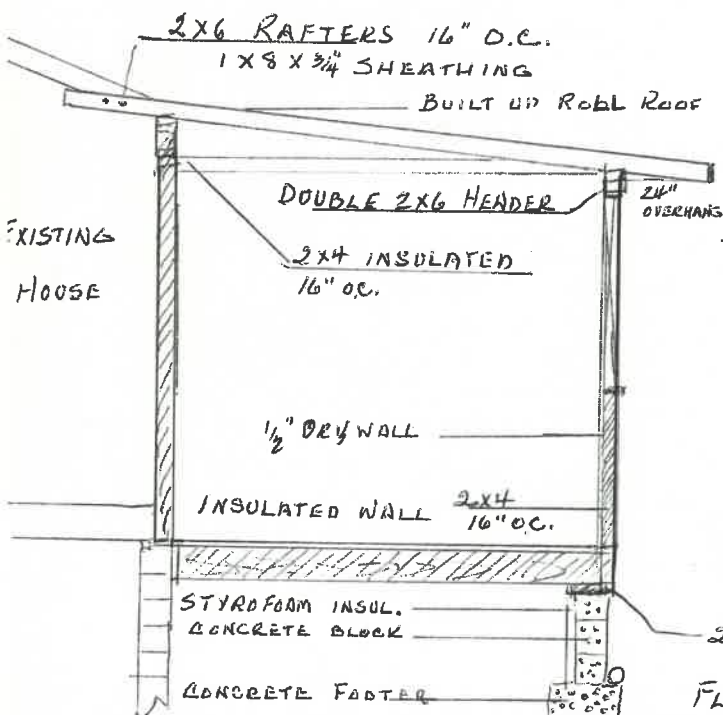 2X6 RAFTERS 16" O.C.
1 X 8 X 3/4" SHEATHING
BUILT UP ROLL ROOF
DOUBLE 2X6 HEADER
24"
OVERHANG
EXISTING
HOUSE
2X4 INSULATED
16" O.C.
1/2" DRY WALL
INSULATED WALL 2X4
16" O.C.
STYROFOAM INSUL.
CONCRETE BLOCK
CONCRETE FOOTER